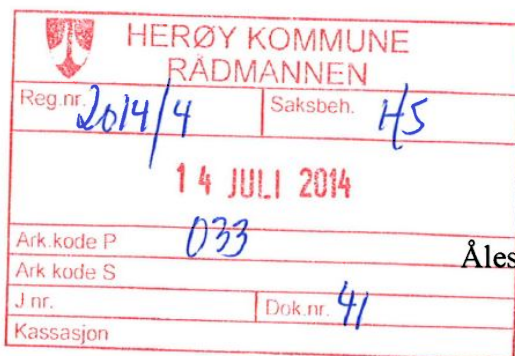 HERØY KOMMUNE
RÅDMANNEN
Reg.nr. 2014/4 Saksbeh. HS
14 JULI 2014
Ark.kode P 033
Åles
Ark kode S
J nr. Dok.nr. 41
Kassasjon